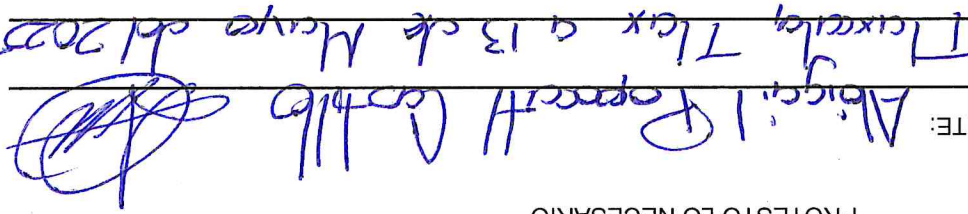 PROTESTO LO NECESARIO
TE: Abigail Popocatl Castillo
Tlaxcala, Tlax a 13 de Mayo del 2025